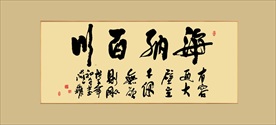 海纳百川
有容
乃大
壁立
千仞
無欲
則剛